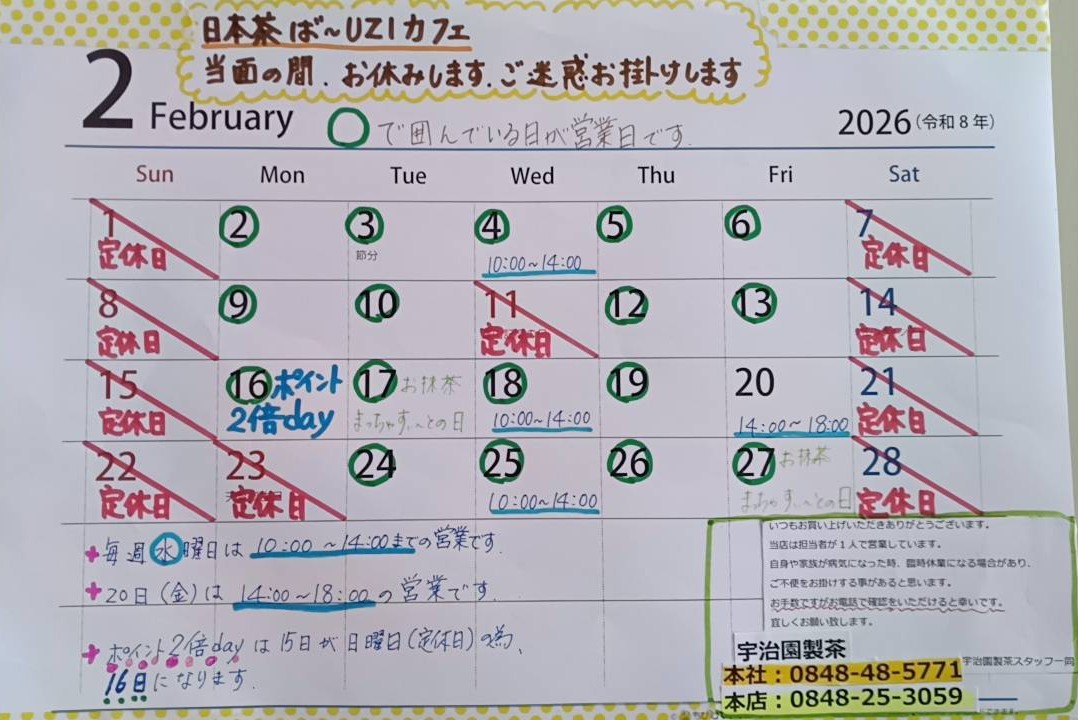 日本茶ば～UZIカフェ
当面の間、お休みします。ご迷惑お掛けします
2 February
○で囲んでいる日が営業日です。
2026(令和8年)
Sun Mon Tue Wed Thu Fri Sat
1 2 3 4 5 6 7
定休日 節分 10:00～14:00 定休日
8 9 10 11 12 13 14
定休日 定休日 定休日
15 16 ポイント 17 お抹茶 18 19 20 21
定休日 2倍day まっちゃすぃ～との日 10:00～14:00 14:00～18:00 定休日
22 23 24 25 26 27 お抹茶 28
定休日 定休日 10:00～14:00 まっちゃすぃ～との日 定休日
+毎週水曜日は 10:00～14:00までの営業です。
+20日(金)は 14:00～18:00の営業です。
+ポイント2倍dayは15日が日曜日(定休日)の為、
16日になります。
いつもお買い上げいただきありがとうございます。
当店は担当者が1人で営業しています。
自身や家族が病気になった時、臨時休業になる場合があり、
ご不便をお掛けする事があると思います。
お手数ですがお電話で確認をいただけると幸いです。
宜しくお願い致します。
宇治園製茶
宇治園製茶スタッフ一同
本社：0848-48-5771
本店：0848-25-3059